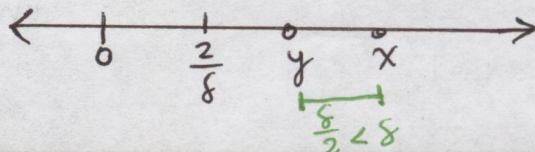 0 2/δ y x
δ/2 < δ